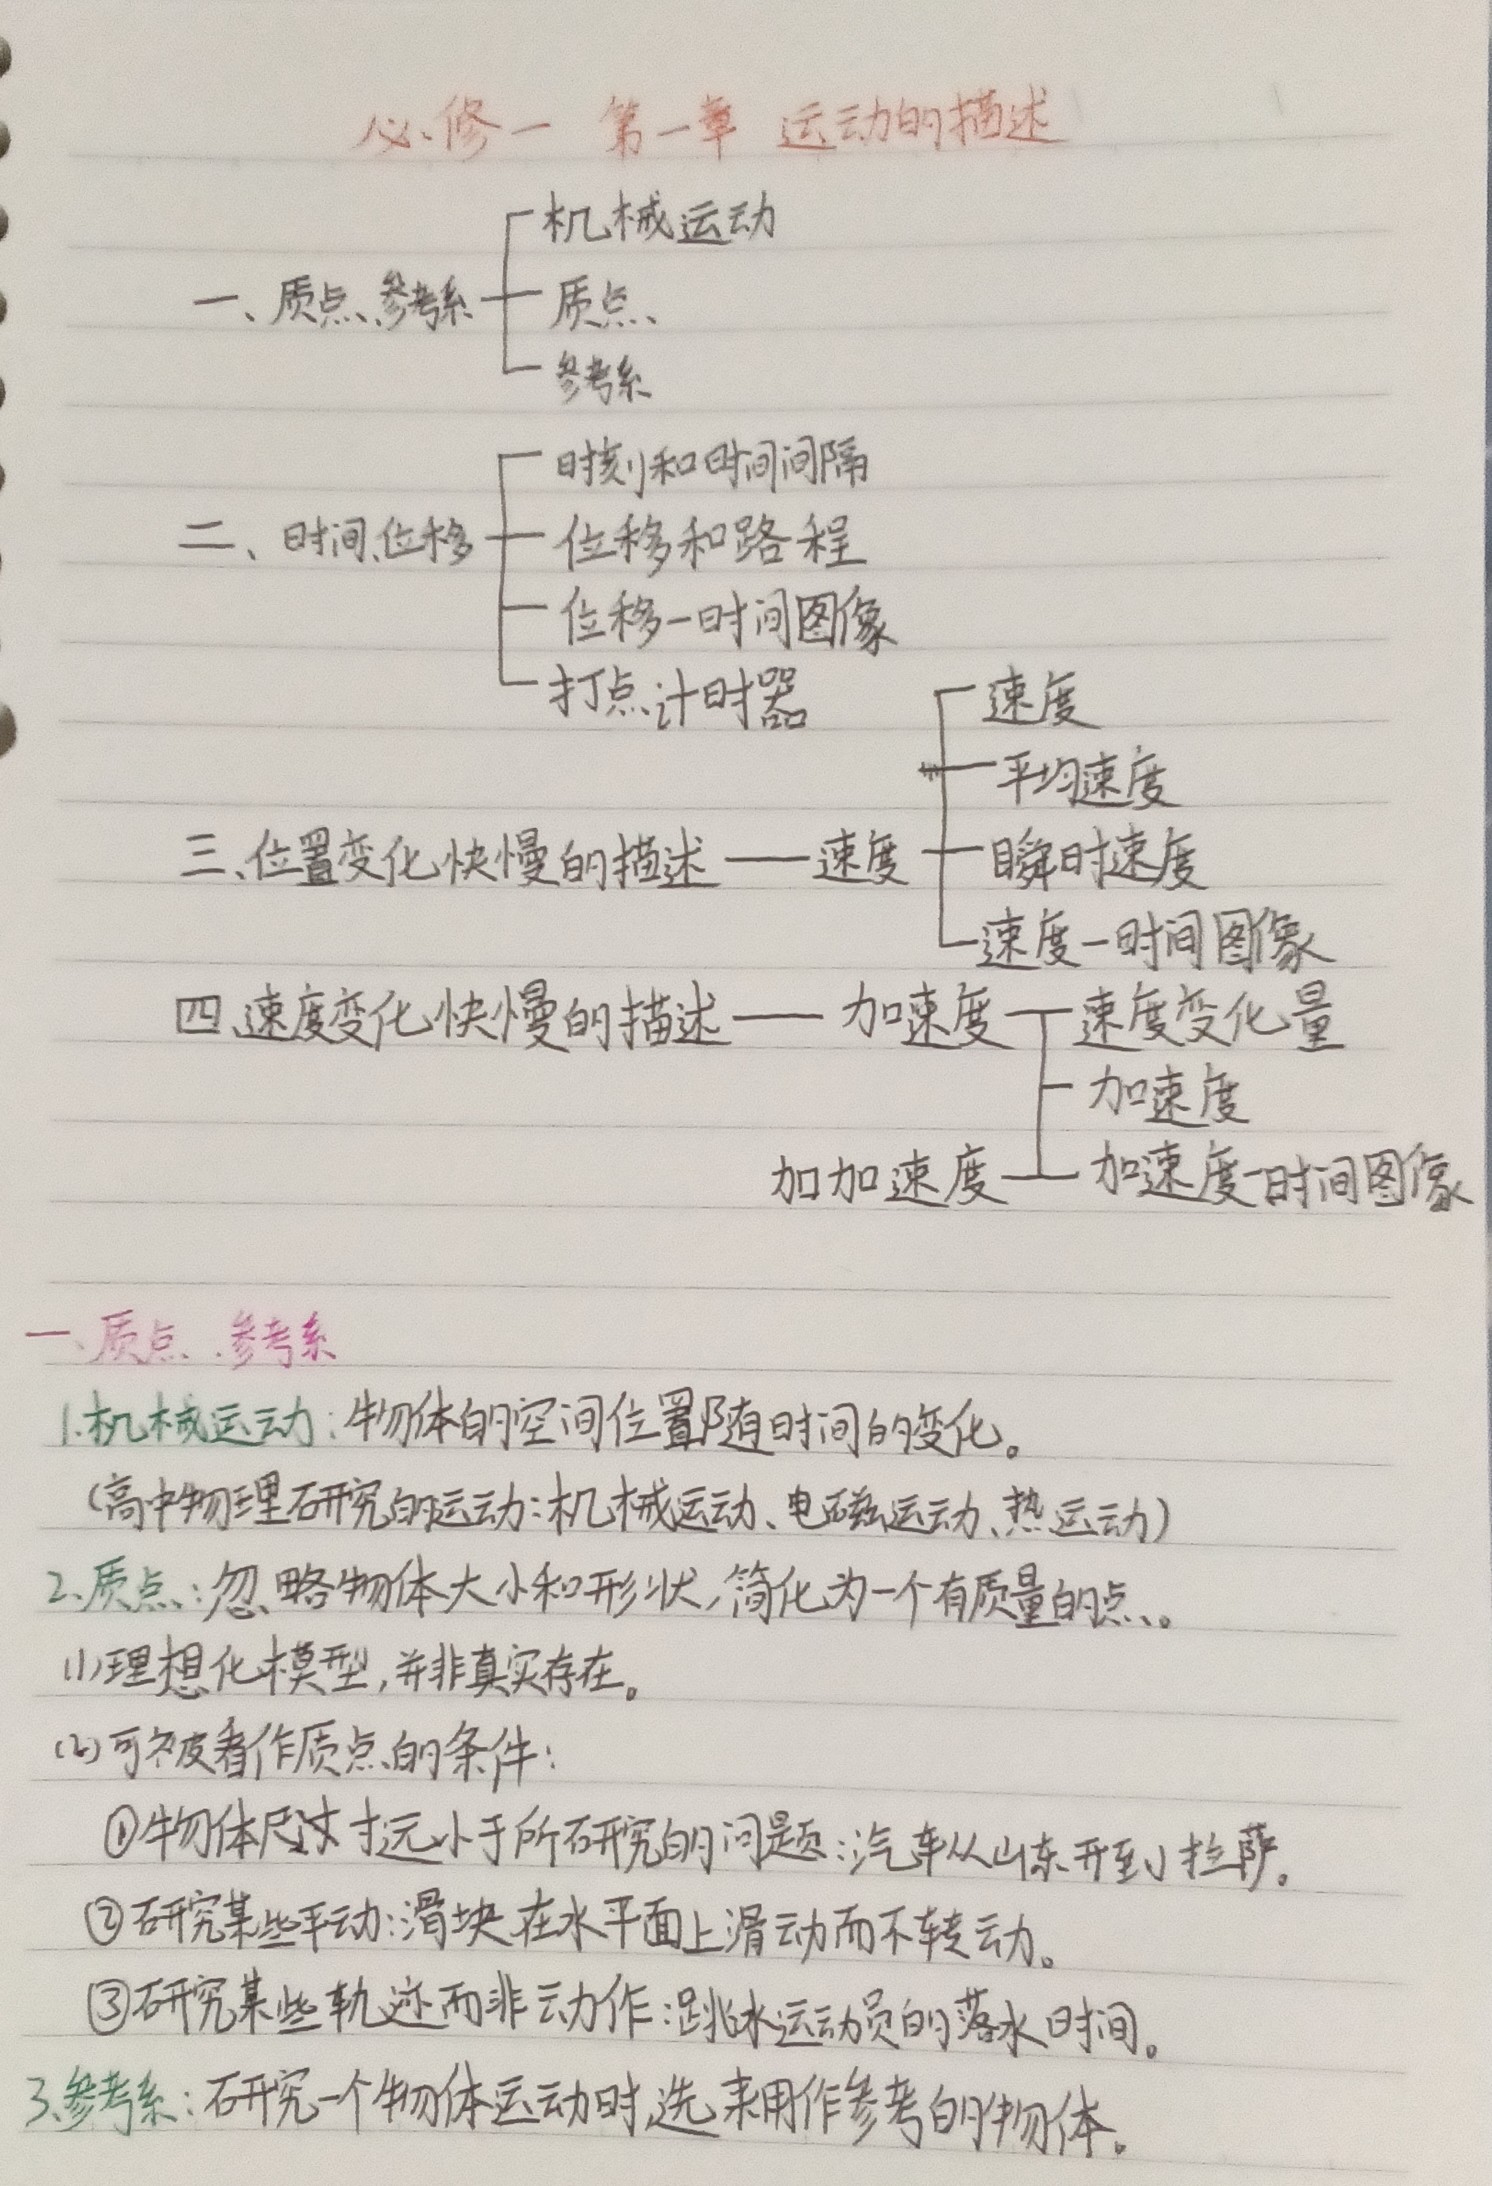 必修一 第一章 运动的描述
机械运动
一、质点、参考系
质点
参考系
时刻和时间间隔
二、时间、位移
位移和路程
位移一时间图像
打点计时器
速度
平均速度
三、位置变化快慢的描述——速度
瞬时速度
速度一时间图像
四、速度变化快慢的描述——加速度
速度变化量
加速度
加加速度
加速度一时间图像
一、质点、参考系
1.机械运动:物体的空间位置随时间的变化。
(高中物理研究的运动:机械运动、电磁运动、热运动)
2.质点:忽略物体大小和形状,简化为一个有质量的点。
(1)理想化模型,并非真实存在。
(2)可被看作质点的条件:
①物体尺寸远小于所研究的问题:汽车从山东开到拉萨。
②研究某些平动:滑块在水平面上滑动而不转动。
③研究某些轨迹而非动作:跳水运动员的落水时间。
3.参考系:研究一个物体运动时,选来用作参考的物体。